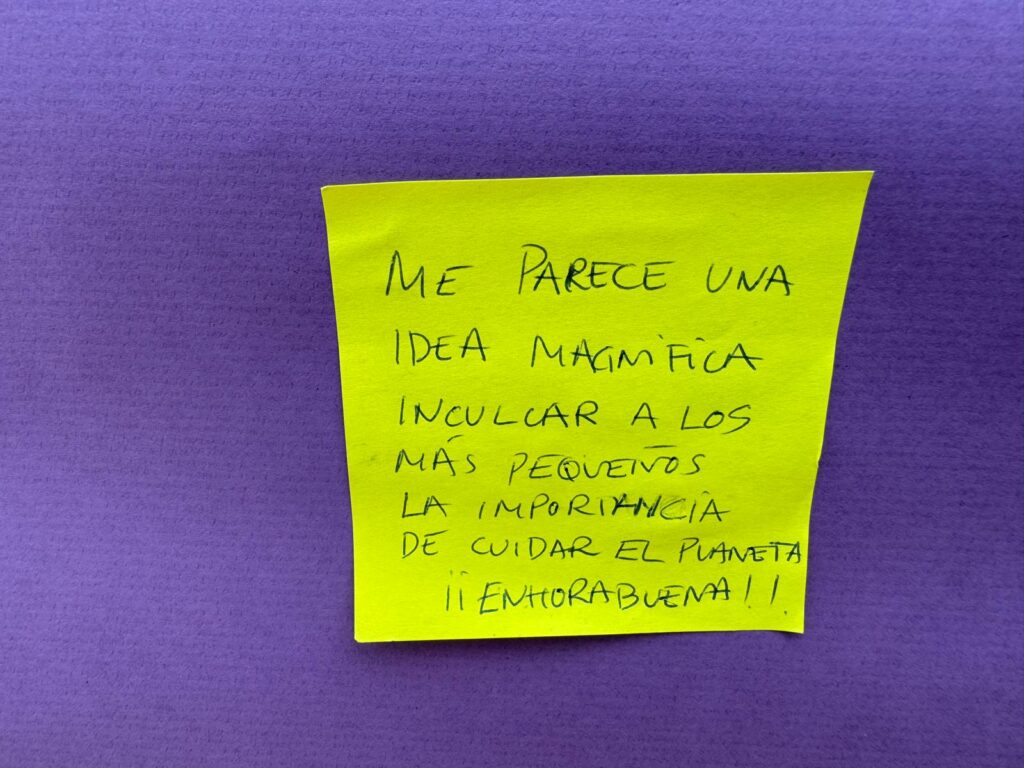 ME PARECE UNA
IDEA MAGNIFICA
INCULCAR A LOS
MÁS PEQUEÑOS
LA IMPORTANCIA
DE CUIDAR EL PLANETA
¡¡ENHORABUENA!!